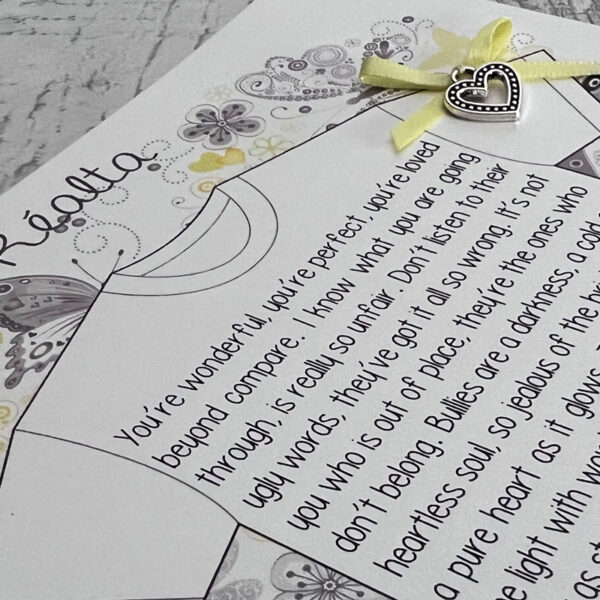 Réalta
You're wonderful, you're perfect, you're loved
beyond compare. I know what you are going
through, is really so unfair. Don't listen to their
ugly words, they've got it all so wrong. It's not
you who is out of place, they're the ones who
don't belong. Bullies are a darkness, a cold
heartless soul, so jealous of the
a pure heart as it glows.
light with
as